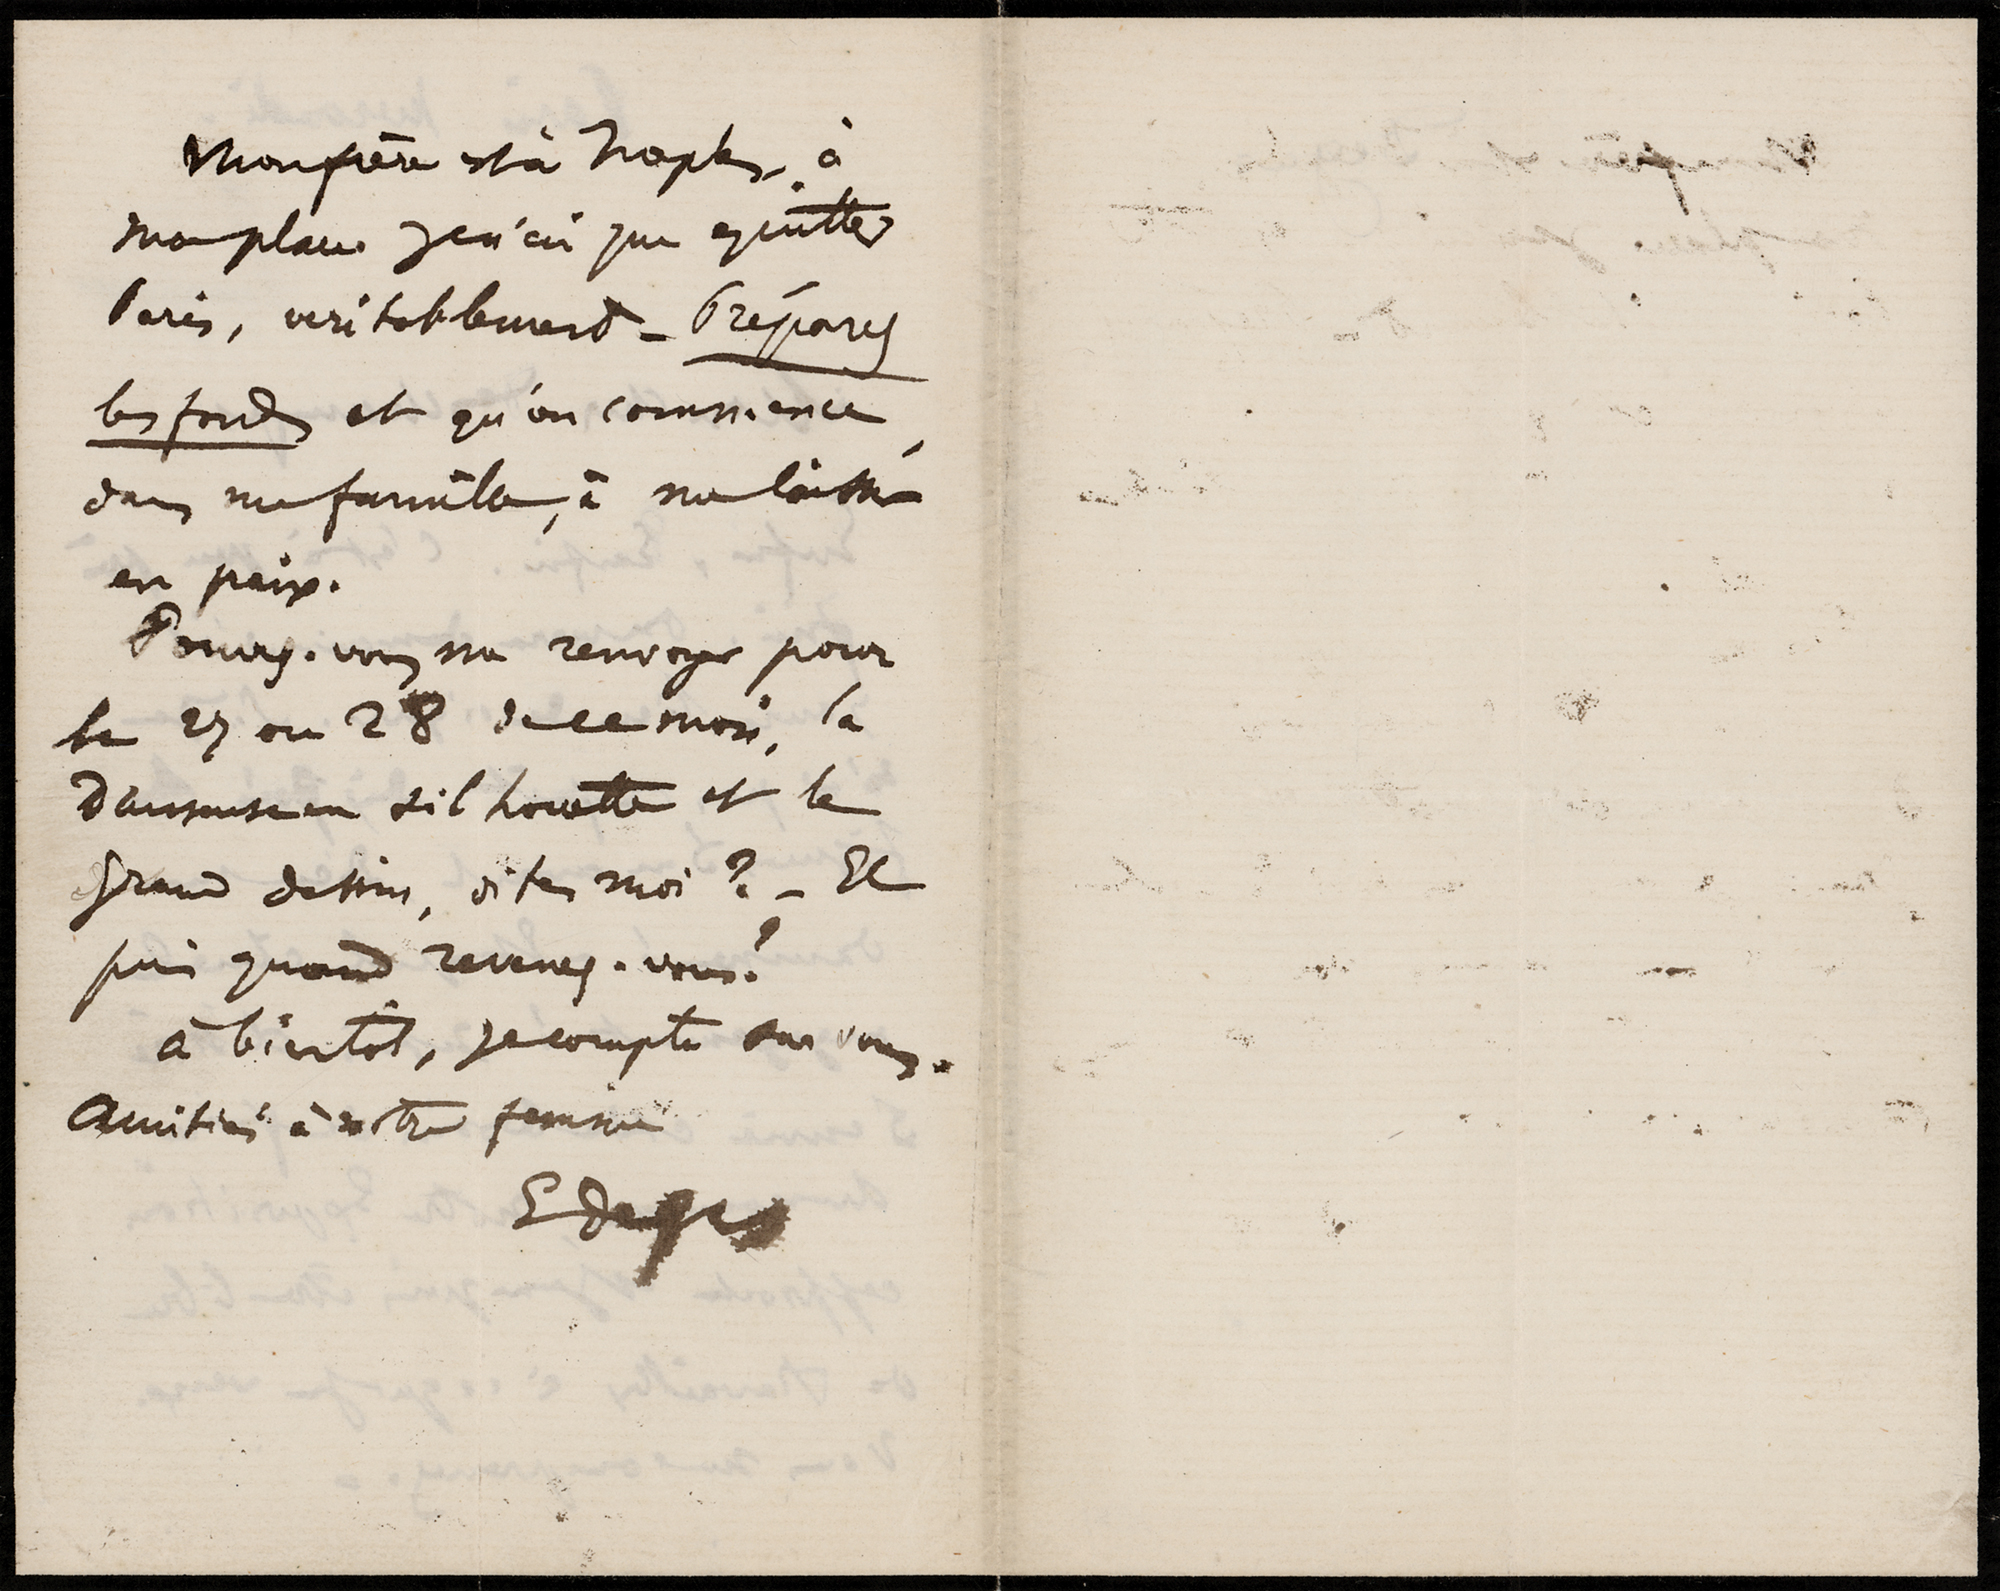 Mon frère est à Naples, à
ma place. Je n'ai pu quitter
Paris, véritablement _ Préparez
les fonds et qu'on commence,
dans ma famille, à me laisser
en paix.
Pouvez-vous me renvoyer pour
le 27 ou 28 de ce mois, la
Danseuse en silhouette et le
grand dessin, dites moi ? _ Et
puis quand revenez-vous?
à bientôt, je compte sur vous.
Amitiés à votre femme
E Degas